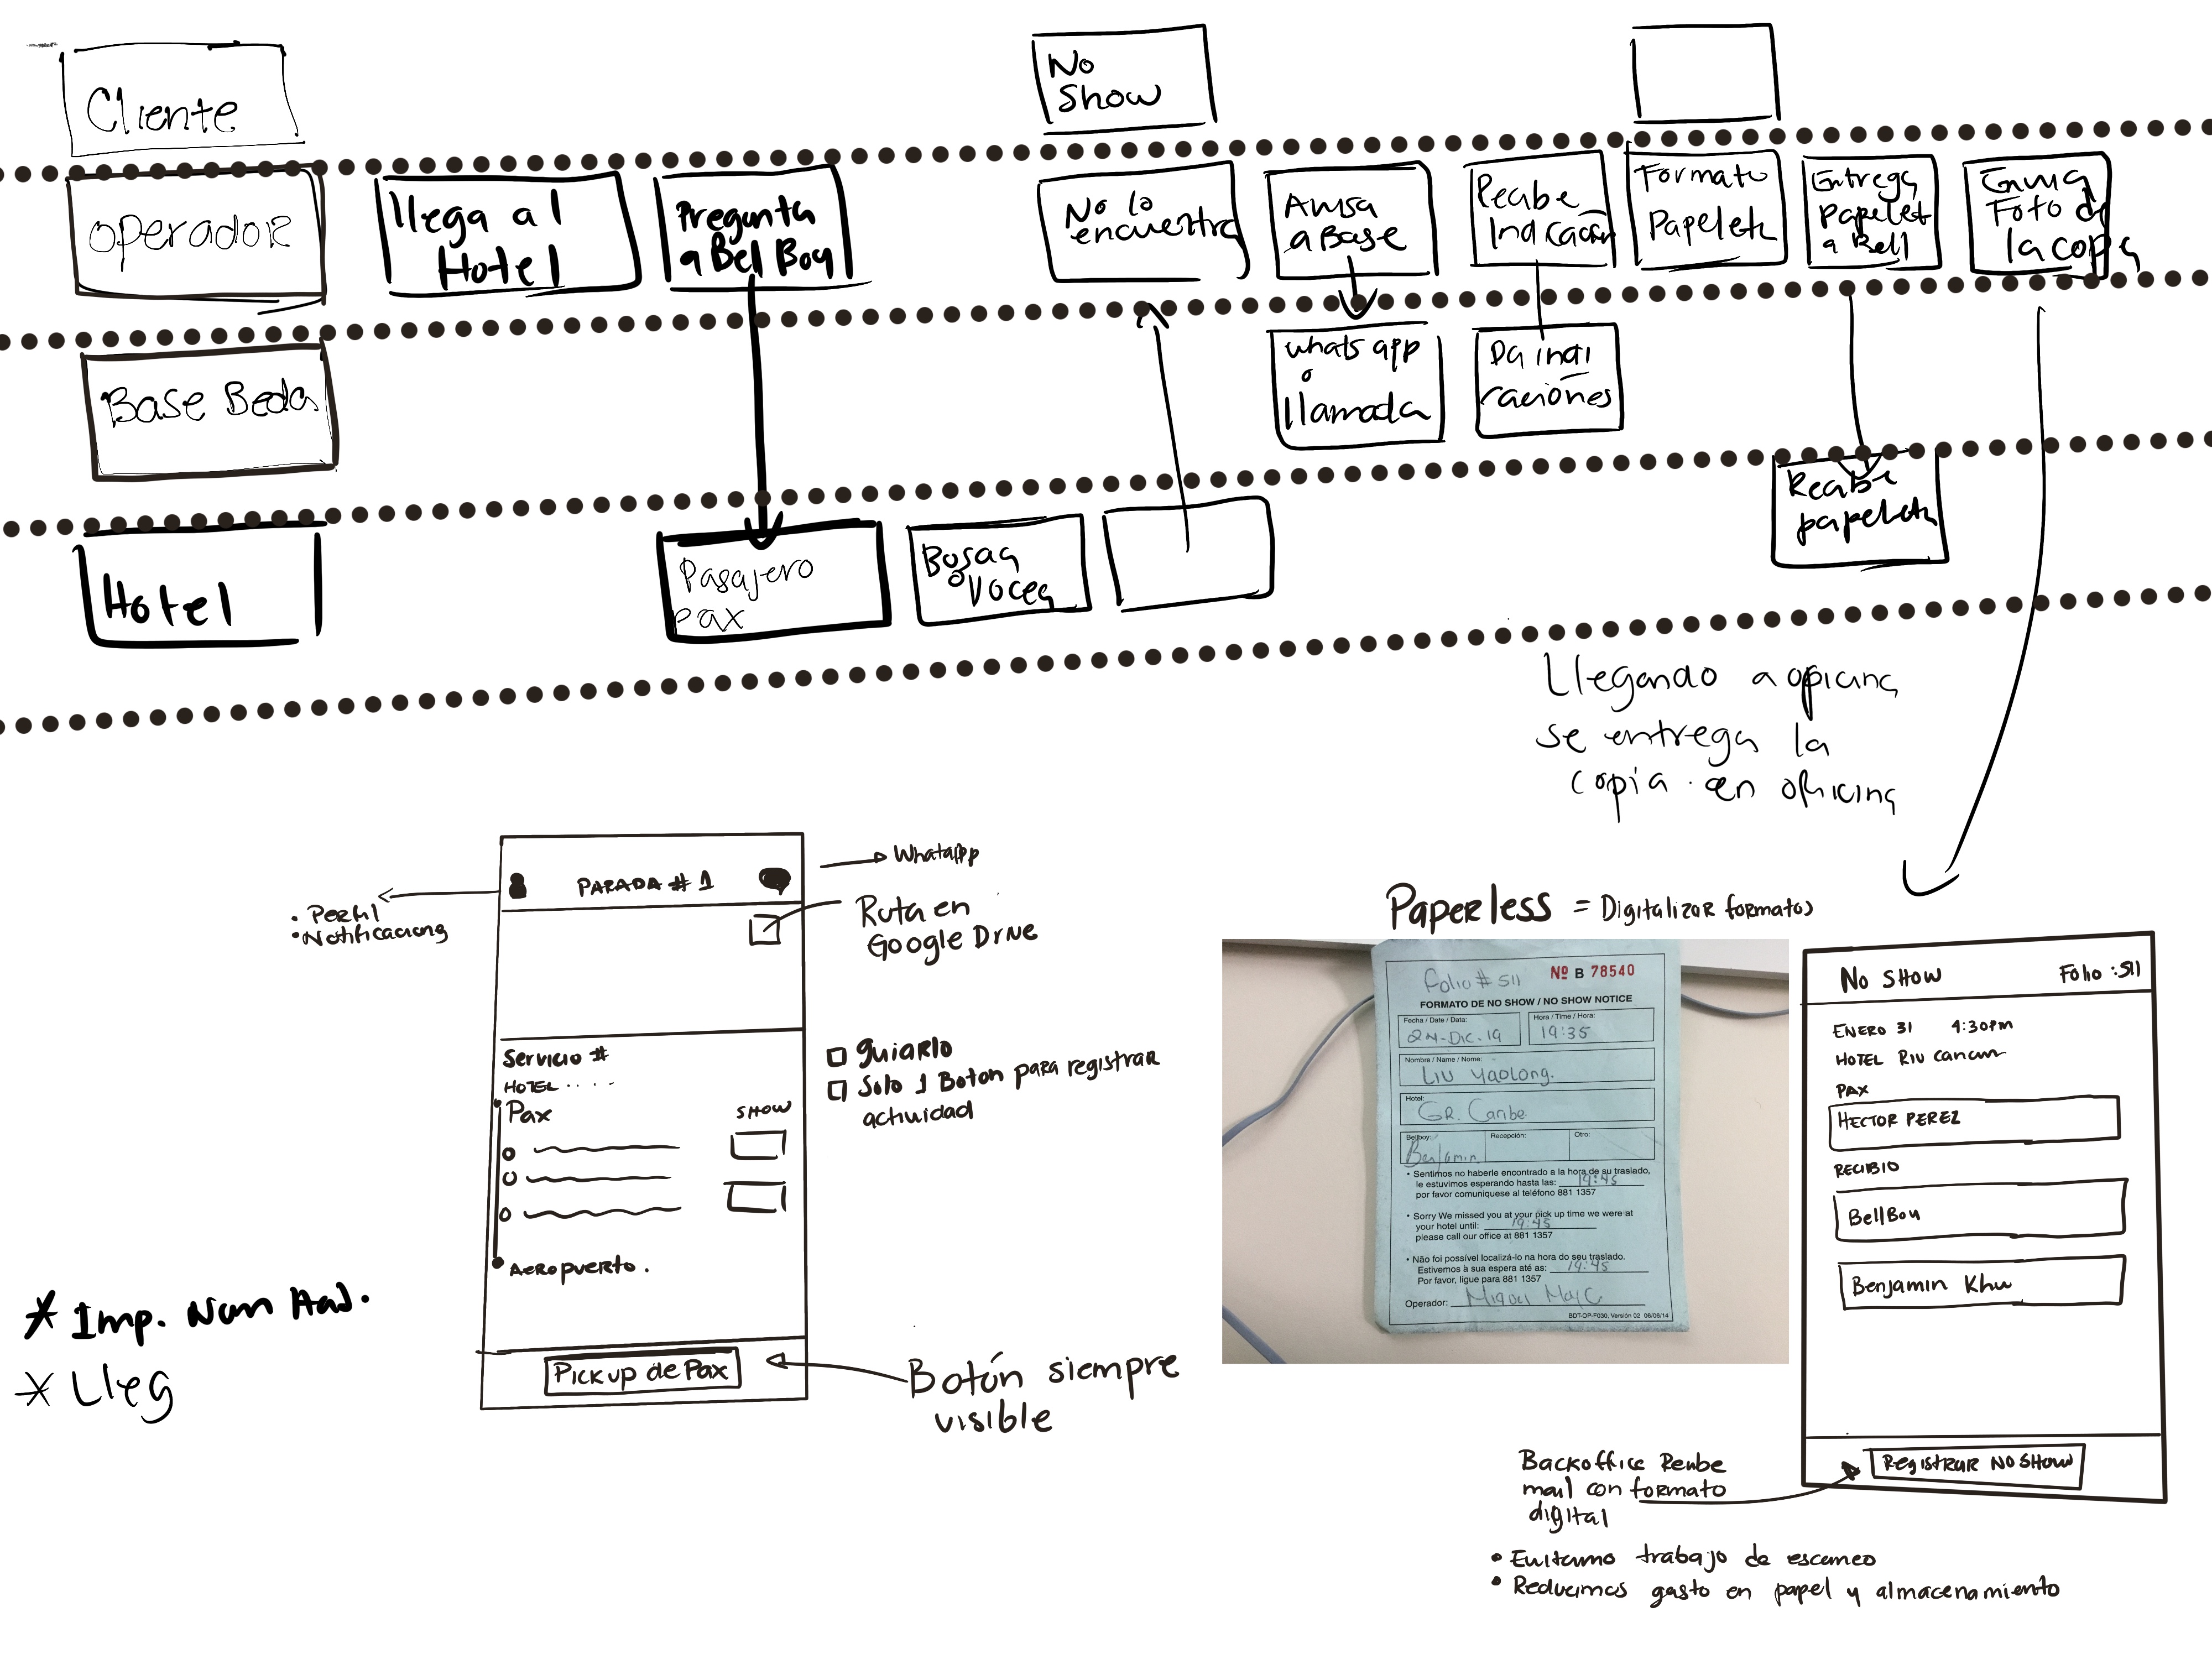 Cliente
No
Show
Operador
llega al
Hotel
Pregunta
a Bel Boy
No lo
encuentra
Avisa
a Base
Recibe
Indicación
Formato
Papeleta
Entrega
Papelet
a Bell
Envia
Foto de
la copia
Base Beda
whats app
o
llamada
Da indi
caciones
Recibe
papeleta
Hotel
Pasajero
Pax
Bosea
o Vocea
Llegando a oficina
se entrega la
copia en oficina
PARADA # 1
Whatapp
• Perfil
• Notificaciong
Ruta en
Google Drive
Servicio #
HOTEL ....
Pax
SHOW
AEROPUERTO.
Pickup de Pax
guiarlo
Solo 1 Boton para registrar
actividad
Botón siempre
visible
* Imp. Num Hab.
* Lleg
Paperless = Digitalizar formatos
Folio # 511
Nº B 78540
FORMATO DE NO SHOW / NO SHOW NOTICE
Fecha / Date / Data:
24-Dic.19
Hora / Time / Hora:
19:35
Nombre / Name / Nome:
Liu Yaolong.
Hotel:
GR. Caribe
Bellboy:
Benjamin
Recepción:
Otro:
• Sentimos no haberle encontrado a la hora de su traslado,
le estuvimos esperando hasta las: 19:45
por favor comuniquese al teléfono 881 1357
• Sorry We missed you at your pick up time we were at
your hotel until: 19:45
please call our office at 881 1357
• Não foi possível localizá-lo na hora do seu traslado.
Estivemos à sua espera até as: 19:45
Por favor, ligue para 881 1357
Operador: Miguel May C.
BDT-OP-F030, Versión 02 06/06/14
No SHOW
Folio :511
ENERO 31 4:30pm
HOTEL RIU Cancun
PAX
HECTOR PEREZ
RECIBIO
BellBoy
Benjamin Khu
Registrar No SHOW
Backoffice Recibe
mail con formato
digital
• Evitamo trabajo de escaneo
• Reducimos gasto en papel y almacenamiento